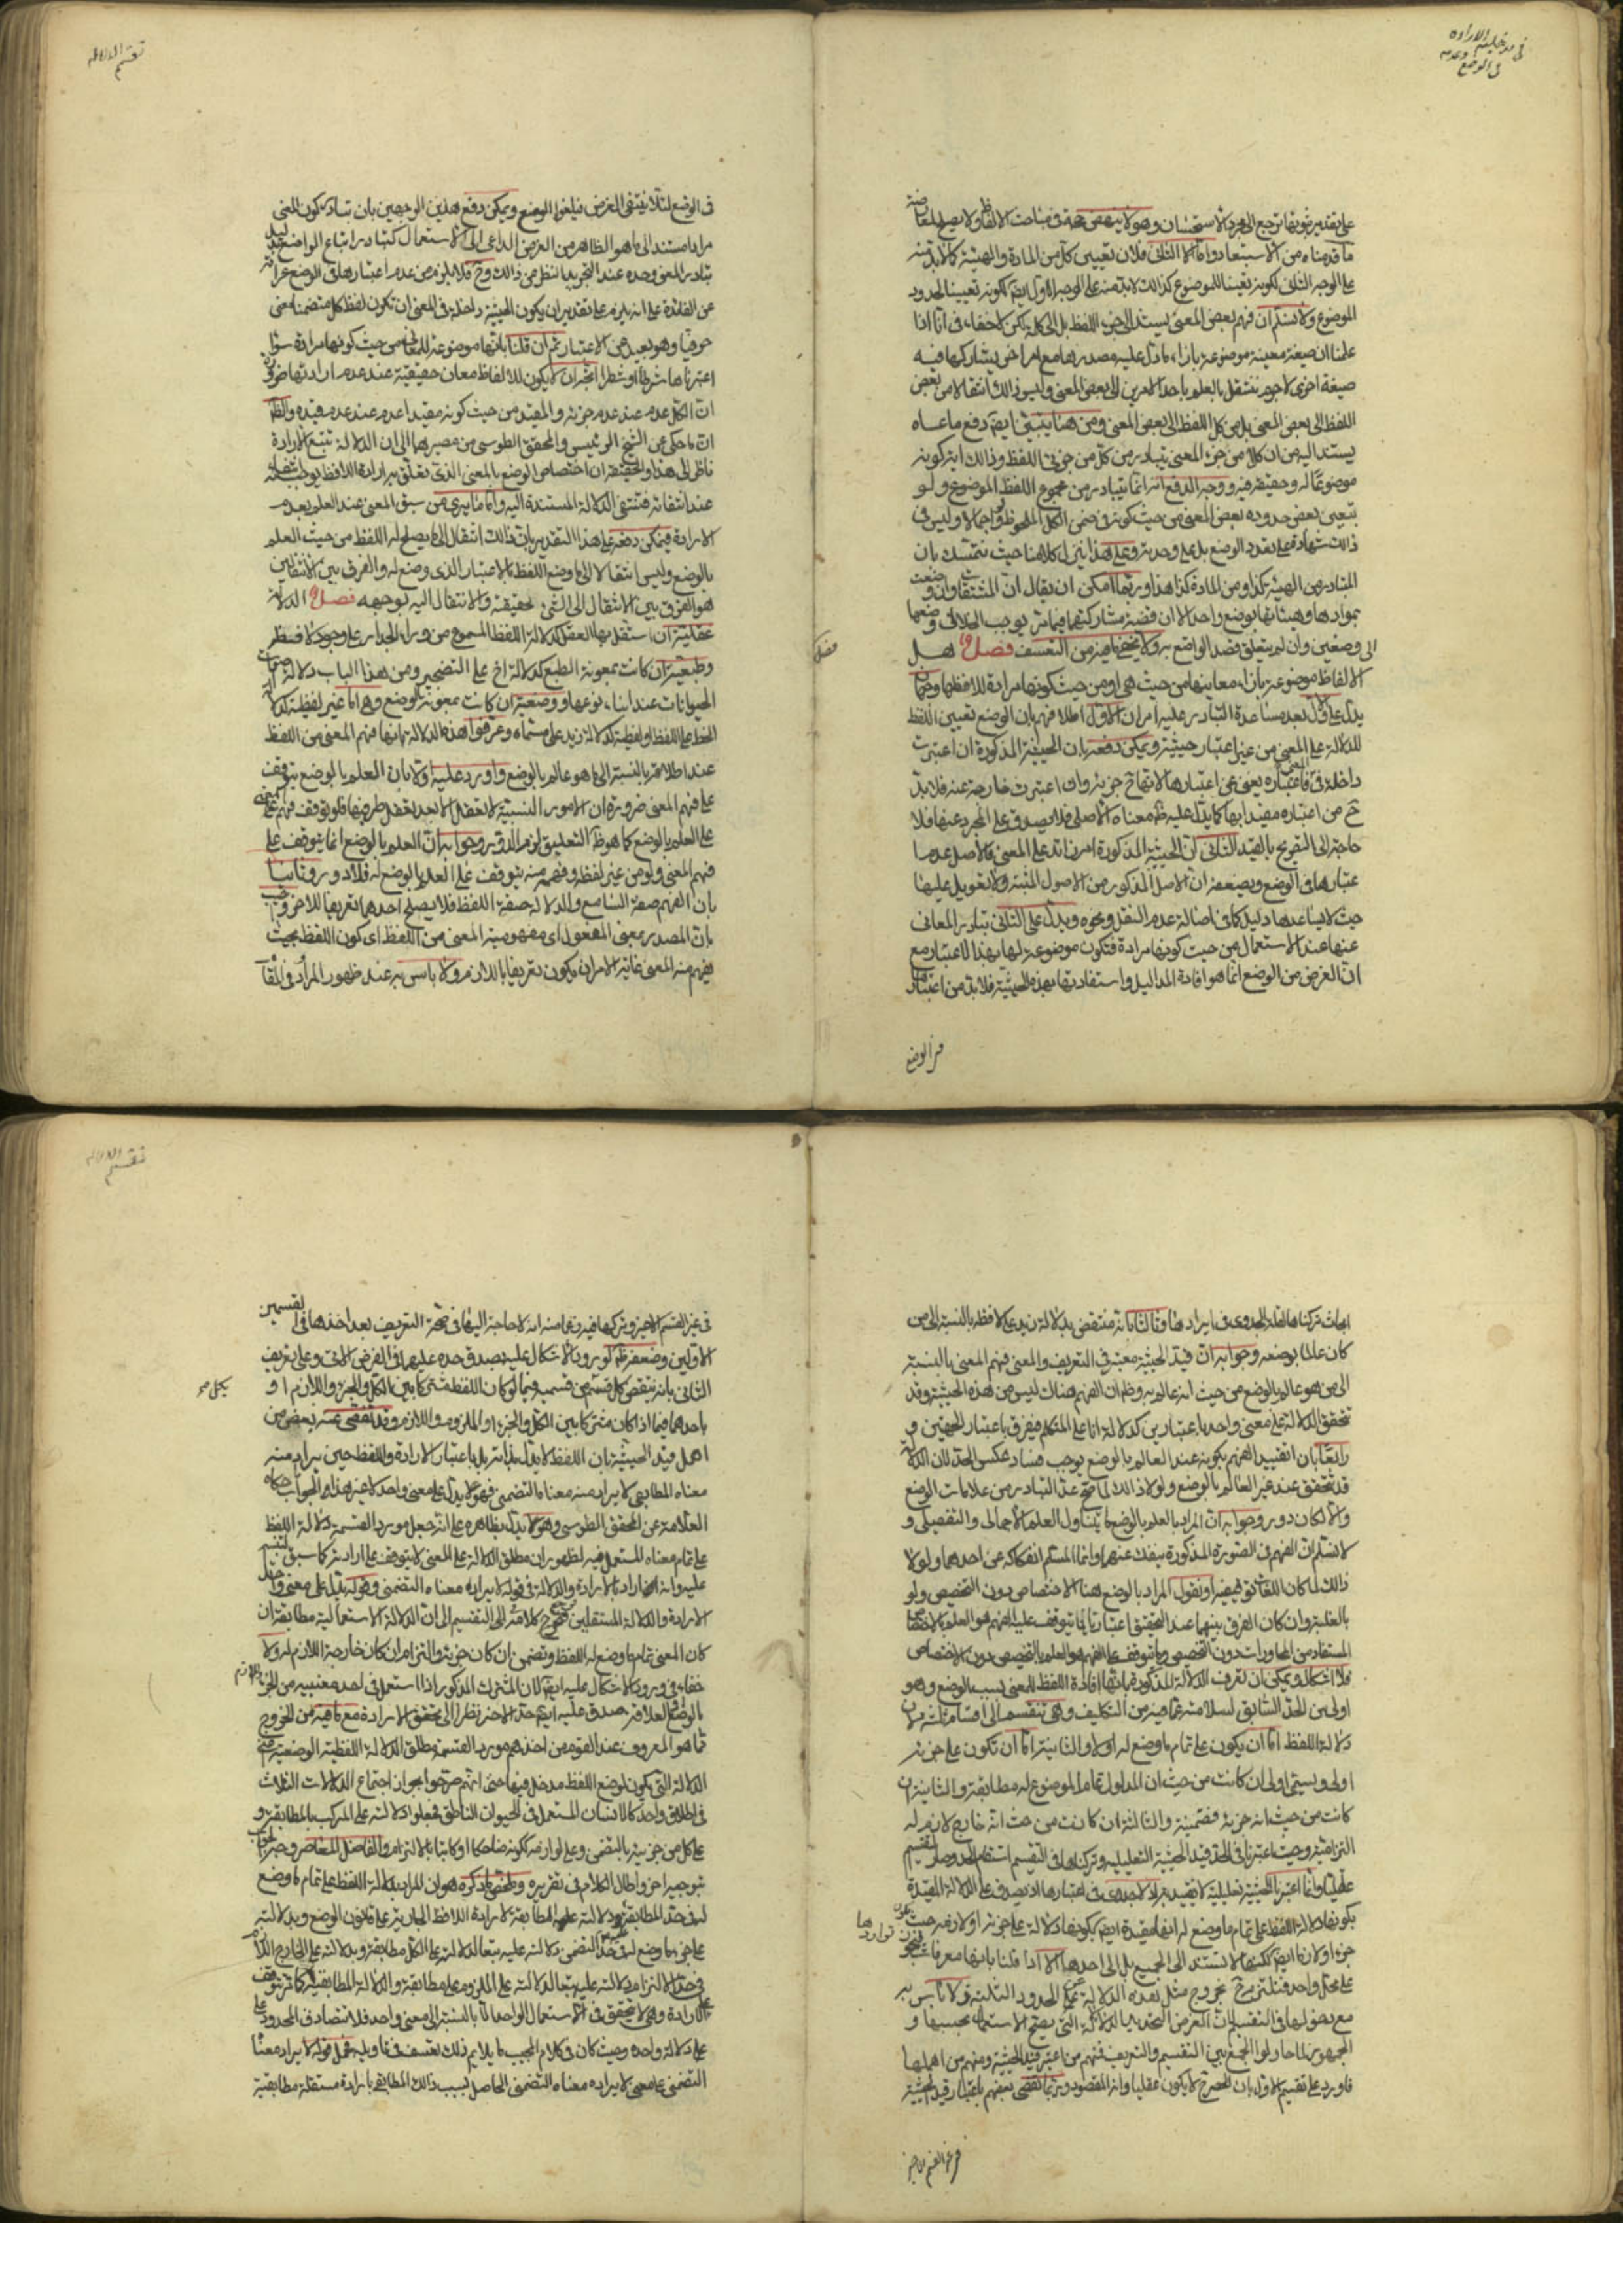 في مدخلية الارادة
وعدمه
في الوضع
على تقدير ثبوتها ترجع الى مجرد الاستحسان وهو لا ينهض حجة في مباحث الالفاظ ولا يصلح لمعارضة
ما قدمناه من الاستبعاد واما الثاني فلان تعيين كل من المادة والهيئة كما لا بد منه
على الوجه الثاني لكونه تعيينا للموضوع كذلك لا بد منه على الوجه الاول ايضا لكونه تعيينا لحدود
الموضوع ولا نسلم ان فهم بعض المعنى يستند الى جزء اللفظ بل الى كله لكن لا خفاء في انا اذا
علمنا ان صيغة معينة موضوعة بازاء ما دل عليه مصدرها مع امر اخر يشاركها فيه
صيغة اخرى لا جرم ننتقل بالعلم باحد الامرين الى بعض المعنى وليس ذلك انتقالا من بعض
اللفظ الى بعض المعنى بل من كل اللفظ الى بعض المعنى ومن هنا ينبثق ايضا دفع ما عساه
يستند اليه من ان كلا من جزء المعنى يتبادر من كل من جزئي اللفظ وذلك اية كونه
موضوعا له وحقيقة فيه ووجه الدفع انه انما يتبادر من مجموع اللفظ الموضوع ولو
بتعيين بعض حدوده بعض المعنى من حيث كونه في ضمن الكل الملحوظ ولو اجمالا وليس في
ذلك شهادة على تعدد الوضع بل على وحدته وعلى هذا ينزل كلامنا حيث نتمسك بان
المتبادر من الهيئة كذا ومن المادة كذا هذا وربما امكن ان يقال ان المشتقات وان وضعت
بموادها وهيئاتها بوضع واحد الا ان قضية مشاركتها فيما مر يوجب انحلال وضعها
الى وضعين وان لم يتعلق قصد الواضع به ولا يخفى ما فيه من التعسف فصل هل
الالفاظ موضوعة بازاء معانيها من حيث هي او من حيث كونها مرادة للافظها وجهان
يدل على الاول بعد مساعدة التبادر عليه امران الاول اطلاقهم بان الوضع تعيين اللفظ
للدلالة على المعنى من غير اعتبار حيثية ويمكن دفعه بان الحيثية المذكورة ان اعتبرت
داخلة في المعنى فاعتباره يغني عن اعتبارها لانها ح جزئه وان اعتبرت خارجة عنه فلا بد
ح من اعتباره مقيدا بها كما يدل عليه ظ معناه الاصلي فلا يصدق على المجرد عنها فلا
حاجة الى التصريح بالقيد الثاني ان الحيثية المذكورة امر زائد على المعنى فالاصل عدم ا
عتبارها في الوضع ويضعفه ان الاصل المذكور من الاصول المثبتة ولا تعويل عليها
حيث لا يساعدها دليل كما في اصالة عدم النقل ونحوه ويدل على الثاني تبادر المعاني
عنها عند الاستعمال من حيث كونها مرادة فتكون موضوعة لها بهذا الاعتبار مع
ان الغرض من الوضع انما هو افادة المداليل واستفادتها بهذه الحيثية فلا بد من اعتبارها
في الوضع
تقسيم الدلالة
في الوضع لئلا ينتفي الغرض فيلغوا الوضع ويمكن دفع هذين الوجهين بان تبادر كون المعنى
مرادا مستند الى ما هو الظاهر من الغرض الداعي الى الاستعمال كتبادر اتباع الواضع بدليل
تبادر المعنى وحده عند التجريد النظر من ذلك وح فلا يلزم من عدم اعتبارها في الوضع عرائه
عن الفائدة على انه يلزم على تقدير ان يكون الحيثية داخلة في المعنى ان تكون لفظ كل متضمنا معنى
حرفيا وهو بعيد عن الاعتبار ثم ان قلنا بانها موضوعة للمعاني من حيث كونها مرادة سواء
اعتبرناها شرطا او شطرا اتجه ان لا يكون للالفاظ معان حقيقية عند عدم ارادتها ضرورة
ان الكل عدم عند عدم جزئه والمقيد من حيث كونه مقيدا عدم عند عدم قيده والظ
ان ما حكي عن الشيخ الرئيس والمحقق الطوسي من مصيرهما الى ان الدلالة تتبع الارادة
ناظر الى هذا وتحقيقه ان اختصاص الوضع بالمعنى الذي تعلق به ارادة اللافظ يوجب انتفائه
عند انتفائه فتنتفي الدلالة المستندة اليه واما ما يرى من سبق المعنى عند العلم بعدم
الارادة فيمكن دفعه على هذا التقدير بان ذلك انتقال الى ما يصلح له اللفظ من حيث العلم
بالوضع وليس انتقالا الى ما وضع اللفظ بالاعتبار الذي وضع له والفرق بين الانتقالين
هو الفرق بين الانتقال الى الشيء بحقيقته والانتقال اليه بوجهه فصل الدلالة
عقلية ان استقل بها العقل كدلالة اللفظ المسموع من وراء الجدار على وجود لافظ
وطبعية ان كانت بمعونة الطبع كدلالة اخ على التضجر ومن هذا الباب دلالة اصوات
الحيوانات عند ابناء نوعها ووضعية ان كانت بمعونة الوضع وهي اما غير لفظية كدلالة
الخط على اللفظ او لفظية كدلالة زيد على مسماه وعرفوا هذه الدلالة بانها فهم المعنى من اللفظ
عند اطلاقه بالنسبة الى ما هو عالم بالوضع واورد عليه اولا بان العلم بالوضع يتوقف
على فهم المعنى ضرورة ان الامور النسبية لا تعقل الا بعد تعقل طرفيها فلو توقف فهم المعنى
على العلم بالوضع كما هو ظ التعليق لزم الدور وجوابه ان العلم بالوضع انما يتوقف على
فهم المعنى ولو من غير لفظه وفهمه منه يتوقف على العلم بالوضع له فلا دور وثانيا
بان الفهم صفة السامع والدلالة صفة اللفظ فلا يصلح احدهما تعريفا للاخر وجوابه
بان المصدر بمعنى المفعول اي مفهومية المعنى من اللفظ اي كون اللفظ بحيث
يفهم منه المعنى غاية الامر ان يكون تعريفا باللازم ولا باس به عند ظهور المراد وفي المقام
فصل
ابحاث تركناها لقلة الجدوى في ايرادها وثالثا بانه منتقض بدلالة زيد على لافظه بالنسبة الى من
كان عالما بوضعه وجوابه ان قيد الحيثية معتبر في التعريف والمعنى فهم المعنى بالنسبة
الى من هو عالم بالوضع من حيث انه عالم به وظ ان الفهم هناك ليس من هذه الحيثية وقد
تحقق الدلالة على معنى واحد باعتبارين كدلالة انا على المتكلم فيفرق باعتبار الجهتين و
رابعا بان تقييد الفهم بكونه عند العالم بالوضع يوجب فساد عكس الحد لان الدلالة
قد تتحقق عند غير العالم بالوضع ولولا ذلك لما صح عد التبادر من علامات الوضع
والا لكان دور وجوابه ان المراد بالعلم بالوضع ما يتناول العلم الاجمالي والتفصيلي و
لا نسلم ان الفهم في الصورة المذكورة ينفك عنهما وانما المسلم انفكاكه عن احدهما ولولا
ذلك لما كان اللفظ يفهمه او نقول المراد بالوضع هنا الاختصاص دون التخصيص ولو
بالغلبة وان كان الفرق بينهما عند التحقيق اعتباريا فما يتوقف عليه الفهم هو العلم بالاختصاص
المستفاد من المحاورات دون التخصيص وما يتوقف على الفهم هو العلم بالتخصيص دون الاختصاص
فلا اشكال ويمكن ان تعرف الدلالة المذكورة بانها افادة اللفظ للمعنى بسبب الوضع وهو
اولى من الحد السابق لسلامته عما فيه من التكليف وهي تنقسم الى اقسام ثلثة لان
دلالة اللفظ اما ان يكون على تمام ما وضع له او لا والثانية اما ان تكون على جزئه
اولا ويسمى الاولى ان كانت من حيث ان المدلول تمام الموضوع له مطابقة والثانية ان
كانت من حيث انه جزئه فتضمنية والثالثة ان كانت من حيث انه خارج لازم له
التزامية وحيث اعتبرنا في الحد قيد الحيثية التعليلية وتركناها في التقسيم استقام الحدود صار التقسيم
عقليا وانما اعتبرنا الحيثية تعليلية لا تقييدية اذ لا جدوى في اعتبارها اذ يصدق على الدلالة المقيدة
بكونها دلالة اللفظ على تمام ما وضع له انها مقيدة ايضا بكونها دلالة على جزئه او لازمه حيث يكون
جزء او لازما ايضا لكنها لا تستند الى الجميع بل الى احدها الا اذا قلنا بانها معرفات فيجوز تواردها
على محل واحد فنلتزم ح بخروج مثل هذه الدلالة عن الحدود الثلثة ولا باس به
مع دخولها في التقسيم لان الغرض التحديد بالدلالة التي يصح الاستعمال بحسبها و
الجمهور لما حاولوا الجمع بين التقسيم والتعريف فمنهم من اعتبر قيد الحيثية ومنهم من اهملها
فاورد على تقسيم الاول بان الحصر ح لا يكون عقليا وانه المقصود وربما تفصى بعضهم باعتبار قيد الحيثية
في غير القسم الاخير
تقسيم الدلالة
في غير القسم الاخير وتركها فيه زعما منه انه لا حاجة اليها في صحة التعريف بعد اخذها في القسمين
الاولين وضعفه ظ لورود الاشكال عليه بصدق حده عليهما في الفرض الاتي وعلى تعريف
الثاني بانه ينتقض كل قسم من قسميه فيما لو كان اللفظ مشتركا بين الكل والجزء واللازم او
باحدهما فيما اذا كان مشتركا بين الكل والجزء او الملزوم واللازم وقد تفصى عنه بعض من
اهمل قيد الحيثية بان اللفظ لا يدل بذاته بل باعتبار الارادة واللفظ حين يراد منه
معناه المطابقي لا يراد منه معناه التضمني فهو لا يدل على معنى واحد لا غير هذا والجواب حكاه
العلامة عن المحقق الطوسي وهو لا يدل بظاهره على انه جعل مورد القسمة دلالة اللفظ
على تمام معناه المستعمل فيه لظهور ان مطلق الدلالة على المعنى لا يتوقف على ارادته كما سبق
عليه وانه اراد بالارادة والدلالة في قوله لا يراد به معناه التضمني وقوله يدل على معنى واحد
الارادة والدلالة المستقلتين فيرجع كلامه الى التقسيم الى ان الدلالة الاستعمالية مطابقة ان
كان المعنى تمام ما وضع له اللفظ وتضمن ان كان جزئه والتزام ان كان خارجه اللازم له ولا
خفاء في ورود الاشكال عليه ايضا لان المشترك المذكور اذا استعمل في احد معنييه من الجزء واللازم
بالوضع او العلاقة صدق عليه ايضا حد الاخر نظرا الى تحقق الارادة مع ما فيه من الخروج
عما هو المعروف عند القوم من اخذهم مورد القسمة مطلق الدلالة اللفظية الوضعية
الدلالة التي يكون لوضع اللفظ مدخل فيها حتى انهم صرحوا بجواز اجتماع الدلالات الثلاث
في اطلاق واحد كالانسان المستعمل في الحيوان الناطق فجعلوا دلالته على المركب بالمطابقة و
على كل من جزئيه بالتضمن وعلى لوازمه ككونه ضاحكا او كاتبا بالالتزام والفاضل المعاصر وجه الجواب
بتوجيه اخر واطال الكلام في تقريره وملخص ما ذكره هو ان المراد بدلالة اللفظ على تمام ما وضع
له في حد المطابقة دلالته عليه مطابقة لارادة اللافظ الجارية على قانون الوضع وبدلالته
على جزء ما وضع له في حد التضمن دلالته عليه تبعا لدلالته على الكل مطابقة وبدلالته على الخارج اللازم
في حد الالتزام دلالته عليه تبعا لدلالته على الملزوم على مطابقة والدلالة المطابقية كما تتوقف
على الارادة وهي لا تتحقق في الاستعمال الواحد الا بالنسبة الى معنى واحد فلا تتصادق الحدود على
على دلالة واحدة وحيث كان في كلام المجيب ما لا يلائم ذلك تعسف في تاويله فحمل قوله لا يراد معناه
التضمني على معنى لا يراد به معناه التضمني الحاصل بسبب ذلك المطابقي بارادة مستقلة مطابقية